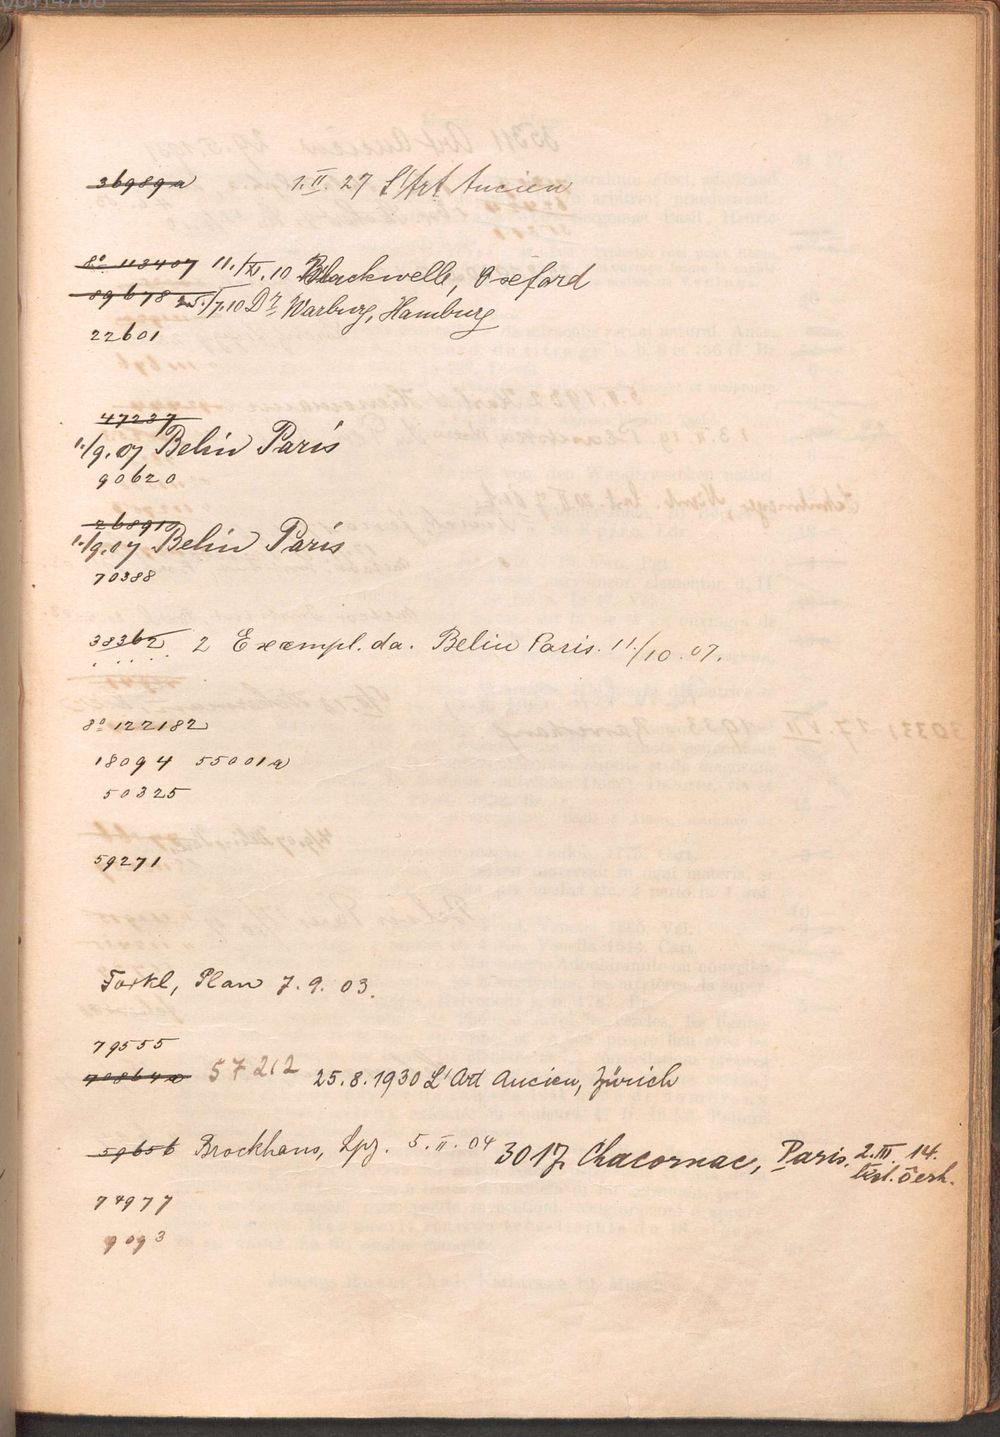 36989a 1. II. 27 L'Art Ancien
8° 113407 11./XI.10 Blackwell, Oxeford
89678 25./7.10 Dr Warburg, Hamburg
22601
47237
11./9.07 Belin Paris
90620
26891
11./9.07 Belin Paris
70388
38362 2 Exempl. da. Belin Paris. 11./10.07.
8° 122182
18094 55001a
50325
59271
Plan 7.9.03.
79555
70864a 57212 25.8.1930 L'Art Ancien, Zürich
59656 Brockhaus, Lpz. 5. II. 04 3017 Chacornac, Paris. 2. III. 14.
74977
9093